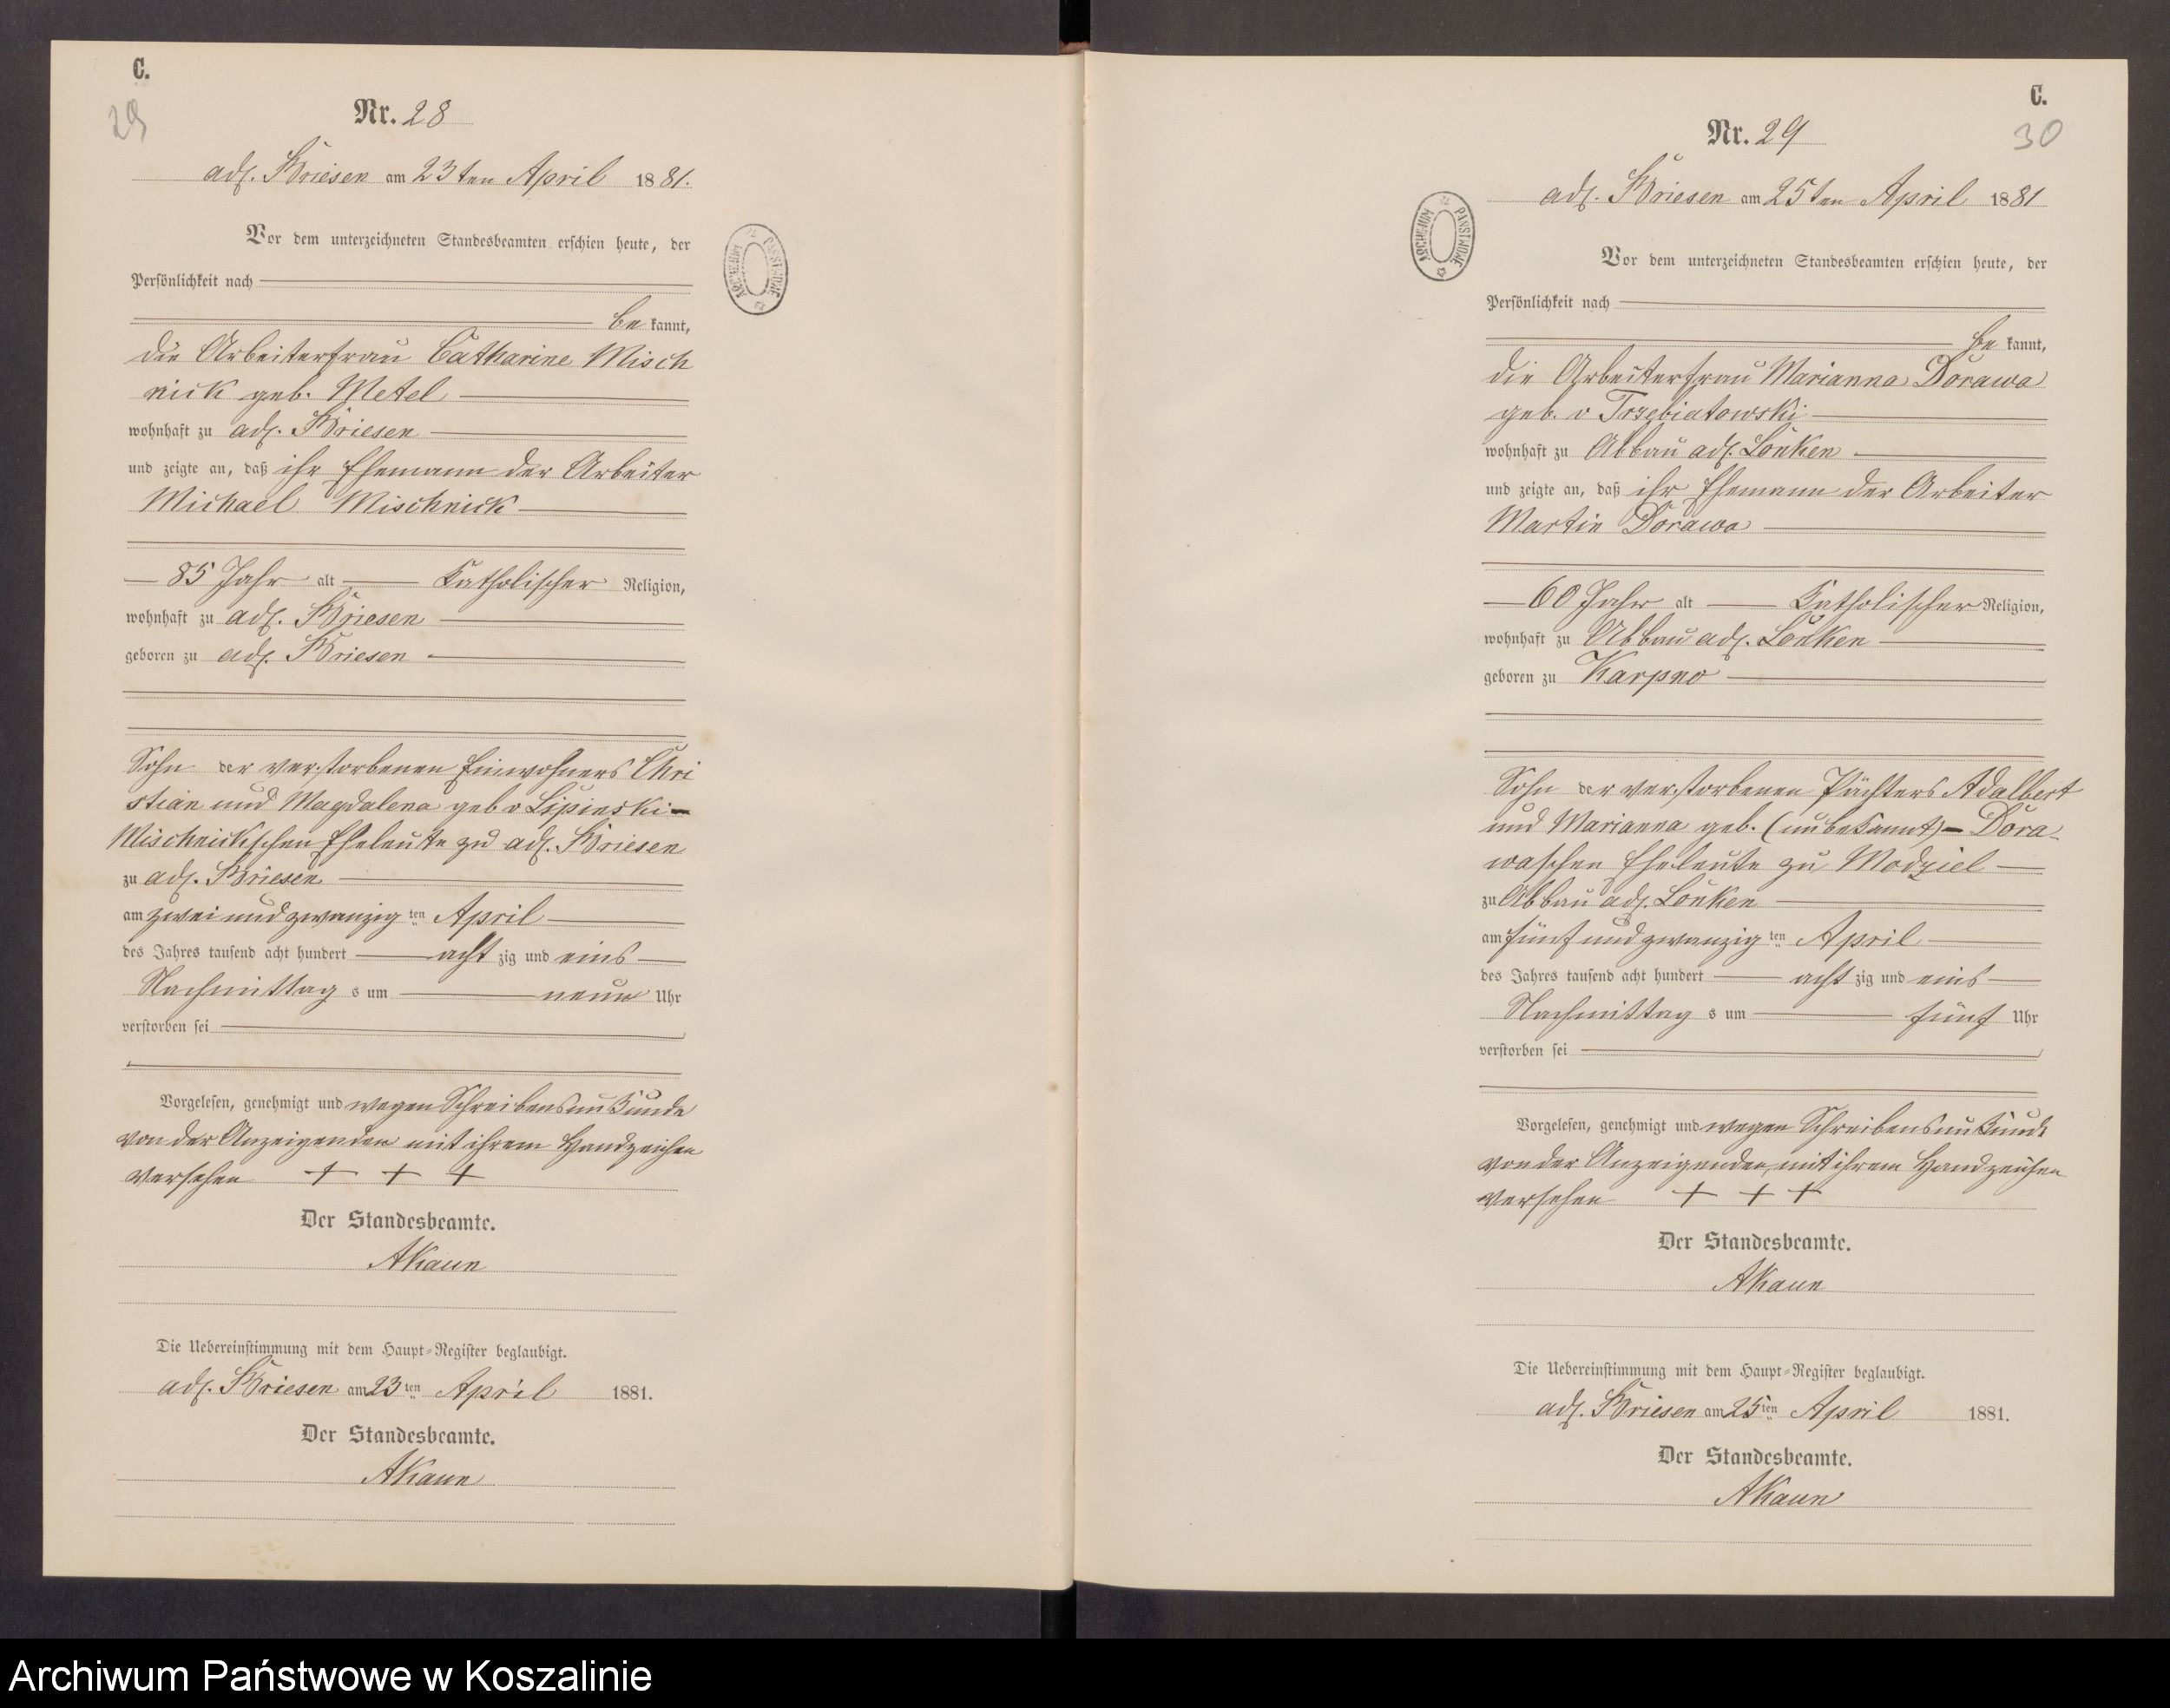 C.
29
Nr. 28
adl. Briesen am 23ten April 1881.
Vor dem unterzeichneten Standesbeamten erschien heute, der
Persönlichkeit nach
be kannt,
die Arbeiterfrau Catharine Misch
nick geb. Metel
wohnhaft zu adl. Briesen
und zeigte an, daß ihr Ehemann der Arbeiter
Michael Mischnick
85 Jahr alt Katholischer Religion,
wohnhaft zu adl. Briesen
geboren zu adl. Briesen
Sohn der verstorbenen Einwohners Chri
stian und Magdalena geb v Lipinski-
Mischnickschen Eheleute zu adl. Briesen
zu adl. Briesen
am zwei und zwanzig ten April
des Jahres tausend acht hundert acht zig und eins
Nachmittag s um neun Uhr
verstorben sei
Vorgelesen, genehmigt und wegen Schreibensunkunde
von der Anzeigenden mit ihrem Handzeichen
versehen + + +
Der Standesbeamte.
AKaun
Die Uebereinstimmung mit dem Haupt-Register beglaubigt.
adl. Briesen am 23ten April 1881.
Der Standesbeamte.
AKaun
ARCHIWUM PAŃSTWOWE
C.
30
Nr. 29
adl. Briesen am 25ten April 1881
Vor dem unterzeichneten Standesbeamten erschien heute, der
Persönlichkeit nach
be kannt,
die Arbeiterfrau Marianna Dorawa
geb. v Trzebiatowski
wohnhaft zu Abbau adl. Lonken
und zeigte an, daß ihr Ehemann der Arbeiter
Martin Dorawa
60 Jahr alt Katholischer Religion,
wohnhaft zu Abbau adl. Lonken
geboren zu Karpno
Sohn der verstorbenen Pächters Adalbert
und Marianna geb. (unbekannt) - Dora-
waschen Eheleute zu Modziel
zu Abbau adl. Lonken
am fünf und zwanzig ten April
des Jahres tausend acht hundert acht zig und eins
Nachmittag s um fünf Uhr
verstorben sei
Vorgelesen, genehmigt und wegen Schreibensunkunde
von der Anzeigenden mit ihrem Handzeichen
versehen + + +
Der Standesbeamte.
AKaun
Die Uebereinstimmung mit dem Haupt-Register beglaubigt.
adl. Briesen am 25ten April 1881.
Der Standesbeamte.
AKaun
ARCHIWUM PAŃSTWOWE
Archiwum Państwowe w Koszalinie